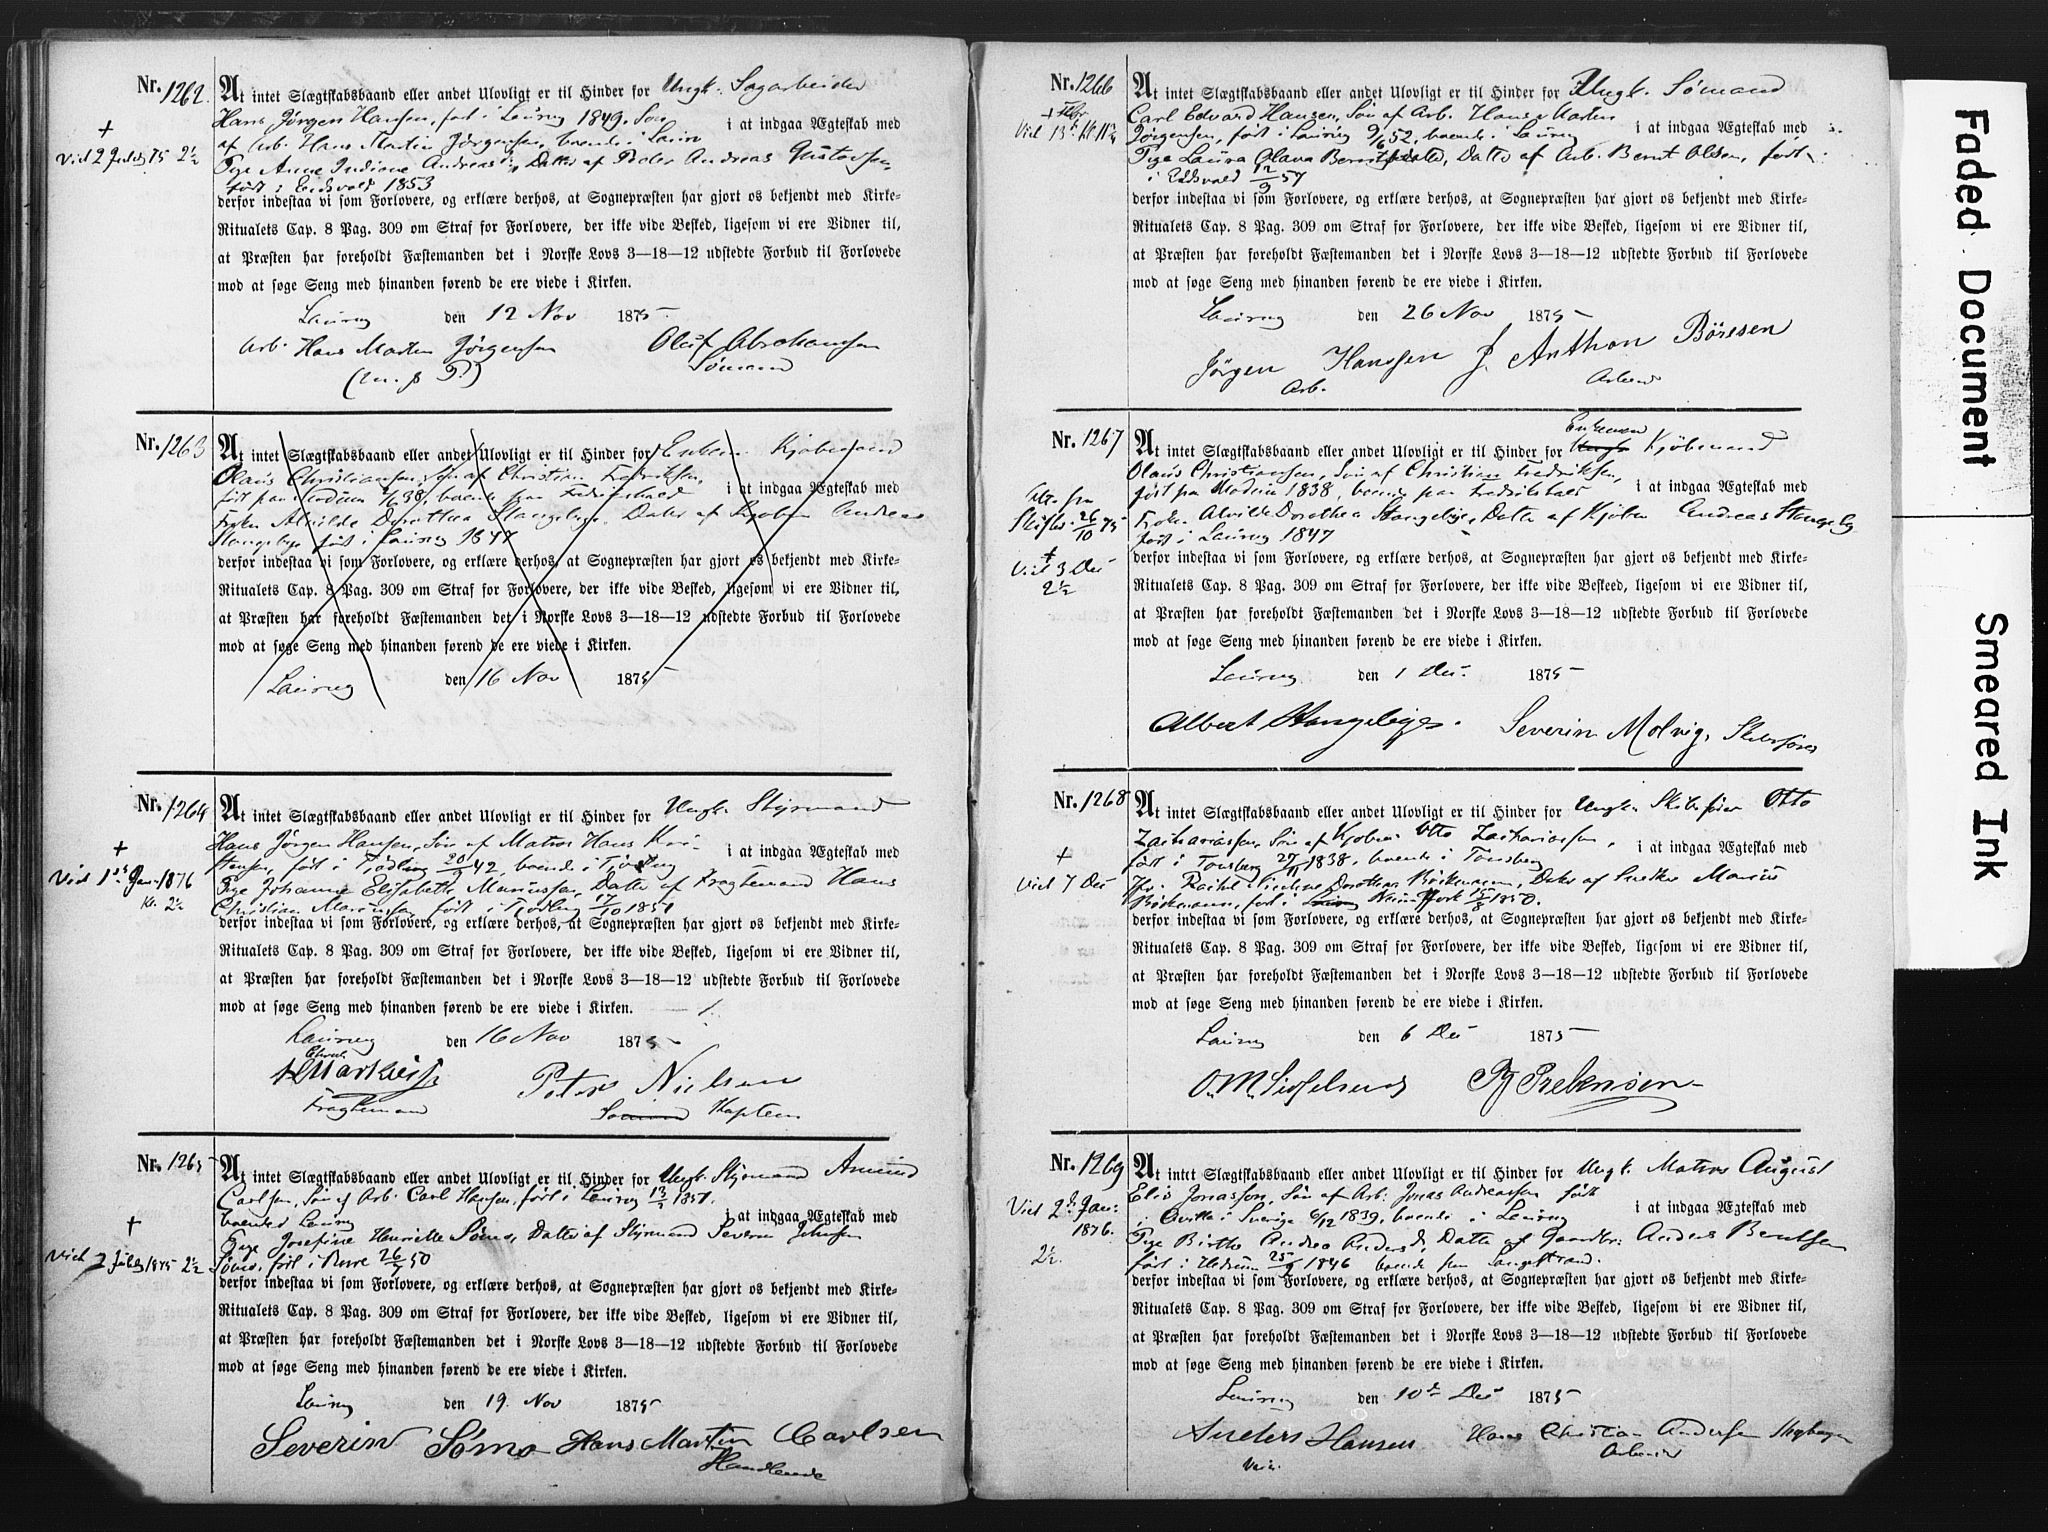 Nr. 1262. At intet Slægtskabsbaand eller andet Ulovligt er til Hinder for Ungk. Sagarbeider
Hans Jørgen Hansen, født i Laurvig 1849. Søn
af Arb. Hans Martin Jørgensen, boende i Laurv i at indgaa Ægteskab med
Vied 2 Juledg 75 2½
Pige Anne Indiane Andreasd., Datter af Peder Andreas Gustavsen
født i Eidsvold 1853
derfor indestaa vi som Forlovere, og erklære derhos, at Sognepræsten har gjort os bekjendt med Kirke-
Ritualets Cap. 8 Pag. 309 om Straf for Forlovere, der ikke vide Besked, ligesom vi ere Vidner til,
at Præsten har foreholdt Fæstemanden det i Norske Lovs 3—18—12 udstedte Forbud til Forlovede
mod at søge Seng med hinanden førend de ere viede i Kirken.
Laurvig den 12 Nov 1875
Arb. Hans Martin Jørgensen Oluf Abrahamsen
(m. p. P.) Sømand
Nr. 1263 At intet Slægtskabsbaand eller andet Ulovligt er til Hinder for Enkem. Kjøbmand
Olaus Christiansen, Søn af Christian Fredriksen,
født paa Modum 1838, boende paa Fredrikshald i at indgaa Ægteskab med
Frøken Alvilde Dorothea Stangebye, Datter af Kjøbm Andreas
Stangebye født i Laurvig 1847
derfor indestaa vi som Forlovere, og erklære derhos, at Sognepræsten har gjort os bekjendt med Kirke-
Ritualets Cap. 8 Pag. 309 om Straf for Forlovere, der ikke vide Besked, ligesom vi ere Vidner til,
at Præsten har foreholdt Fæstemanden det i Norske Lovs 3—18—12 udstedte Forbud til Forlovede
mod at søge Seng med hinanden førend de ere viede i Kirken.
Laurvig den 16 Nov 1875
Nr. 1264 At intet Slægtskabsbaand eller andet Ulovligt er til Hinder for Ungk. Styrmand
Hans Jørgen Hansen, Søn af Matros Hans Kri-
stensen, født i Tjødling 20/9 42, boende i Tjødling i at indgaa Ægteskab med
Vied 1st Jan. 1876
Kl. 2½
Pige Johanne Elisabeth Mariussen, Datter af Fragtemand Hans
Christian Mariussen, født i Tjødling 17/10 1851
derfor indestaa vi som Forlovere, og erklære derhos, at Sognepræsten har gjort os bekjendt med Kirke-
Ritualets Cap. 8 Pag. 309 om Straf for Forlovere, der ikke vide Besked, ligesom vi ere Vidner til,
at Præsten har foreholdt Fæstemanden det i Norske Lovs 3—18—12 udstedte Forbud til Forlovede
mod at søge Seng med hinanden førend de ere viede i Kirken.
Laurvig den 16 Nov 1875
Peter Nielsen
Fragtemand Sømand Kaptein
Nr. 1265 At intet Slægtskabsbaand eller andet Ulovligt er til Hinder for Ungk. Styrmand Amund
Carlsen, Søn af Arb. Carl Hansen, født i Laurvig 1851.
boende i Laurvig i at indgaa Ægteskab med
Vied 2 Juledg 1875 2½
Pige Josefine Henriette Sømo, Datter af Styrmand Severin Johnsen
Sømo, født i 26/7 50
derfor indestaa vi som Forlovere, og erklære derhos, at Sognepræsten har gjort os bekjendt med Kirke-
Ritualets Cap. 8 Pag. 309 om Straf for Forlovere, der ikke vide Besked, ligesom vi ere Vidner til,
at Præsten har foreholdt Fæstemanden det i Norske Lovs 3—18—12 udstedte Forbud til Forlovede
mod at søge Seng med hinanden førend de ere viede i Kirken.
Laurvig den 19. Nov 1875
Severin Sømo Hans Martin Carlsen
Handlende
Nr. 1266 At intet Slægtskabsbaand eller andet Ulovligt er til Hinder for Ungk. Sømand
Carl Edvard Hansen, Søn af Arb. Hans Martin
Jørgensen, født i Laurvig 9/6 52, boende i Laurvig i at indgaa Ægteskab med
Pige Laura Olava Berntsdatter, Datter af Arb. Bernt Olsen, født
i Eidsvold 12/9 57
derfor indestaa vi som Forlovere, og erklære derhos, at Sognepræsten har gjort os bekjendt med Kirke-
Ritualets Cap. 8 Pag. 309 om Straf for Forlovere, der ikke vide Besked, ligesom vi ere Vidner til,
at Præsten har foreholdt Fæstemanden det i Norske Lovs 3—18—12 udstedte Forbud til Forlovede
mod at søge Seng med hinanden førend de ere viede i Kirken.
Laurvig den 26 Nov 1875
Jørgen Hanssen J. Anthon Böresen
Arb. Arbeid
Nr. 1267 At intet Slægtskabsbaand eller andet Ulovligt er til Hinder for Enkemand Kjøbmand
Olaus Christiansen, Søn af Christian Fredriksen,
født paa Modum 1838, boende paa Fredrikshald i at indgaa Ægteskab med
Att. fra
Skifter. 26/10 75
Vied 3 Dec
2½
Frøken Alvilde Dorothea Stangebye, Datter af Kjøbm Andreas Stangeby
født i Laurvig 1847
derfor indestaa vi som Forlovere, og erklære derhos, at Sognepræsten har gjort os bekjendt med Kirke-
Ritualets Cap. 8 Pag. 309 om Straf for Forlovere, der ikke vide Beskeed, ligesom vi ere Vidner til,
at Præsten har foreholdt Fæstemanden det i Norske Lovs 3—18—12 udstedte Forbud til Forlovede
mod at søge Seng med hinanden førend de ere viede i Kirken.
Laurvig den 1 Dec. 1875
Albert Stangebye. Severin Molvig, Skibsfører
Nr. 1268 At intet Slægtskabsbaand eller andet Ulovligt er til Hinder for Ungk. Skibsfører Otto
Zachariassen, Søn af Kjøbm. Otto Zachariassen,
født i Tønsberg 27/11 1838, boende i Tønsberg i at indgaa Ægteskab med
Vied 7 Dec
Dorothea Bøckmann, Datter af Snedker Marius
Bøckmann, født i New York 15/8 1850.
derfor indestaa vi som Forlovere, og erklære derhos, at Sognepræsten har gjort os bekjendt med Kirke-
Ritualets Cap. 8 Pag. 309 om Straf for Forlovere, der ikke vide Besked, ligesom vi ere Vidner til,
at Præsten har foreholdt Fæstemanden det i Norske Lovs 3—18—12 udstedte Forbud til Forlovede
mod at søge Seng med hinanden førend de ere viede i Kirken.
Laurvig den 6 Dec 1875
Prebensen
Nr. 1269 At intet Slægtskabsbaand eller andet Ulovligt er til Hinder for Ungk. Matros August
Elis Jonasson, Søn af Arb. Jonas Andreassen født
i Sverige 6/12 1839, boende i Laurvig i at indgaa Ægteskab med
Vied 2d. Jan:
1876.
2½.
Pige Birthe Andrea Andersd, Datter af Gaardbr. Anders Berntsen
født i Hedrum 25/9 1846 boende paa Langestrand.
derfor indestaa vi som Forlovere, og erklære derhos, at Sognepræsten har gjort os bekjendt med Kirke-
Ritualets Cap. 8 Pag. 309 om Straf for Forlovere, der ikke vide Besked, ligesom vi ere Vidner til,
at Præsten har foreholdt Fæstemanden det i Norske Lovs 3—18—12 udstedte Forbud til Forlovede
mod at søge Seng med hinanden førend de ere viede i Kirken.
Laurvig den 10de Dec 1875
Anders Hansen Hans Christian Andersen
Arbeider
Faded Document
Smeared Ink